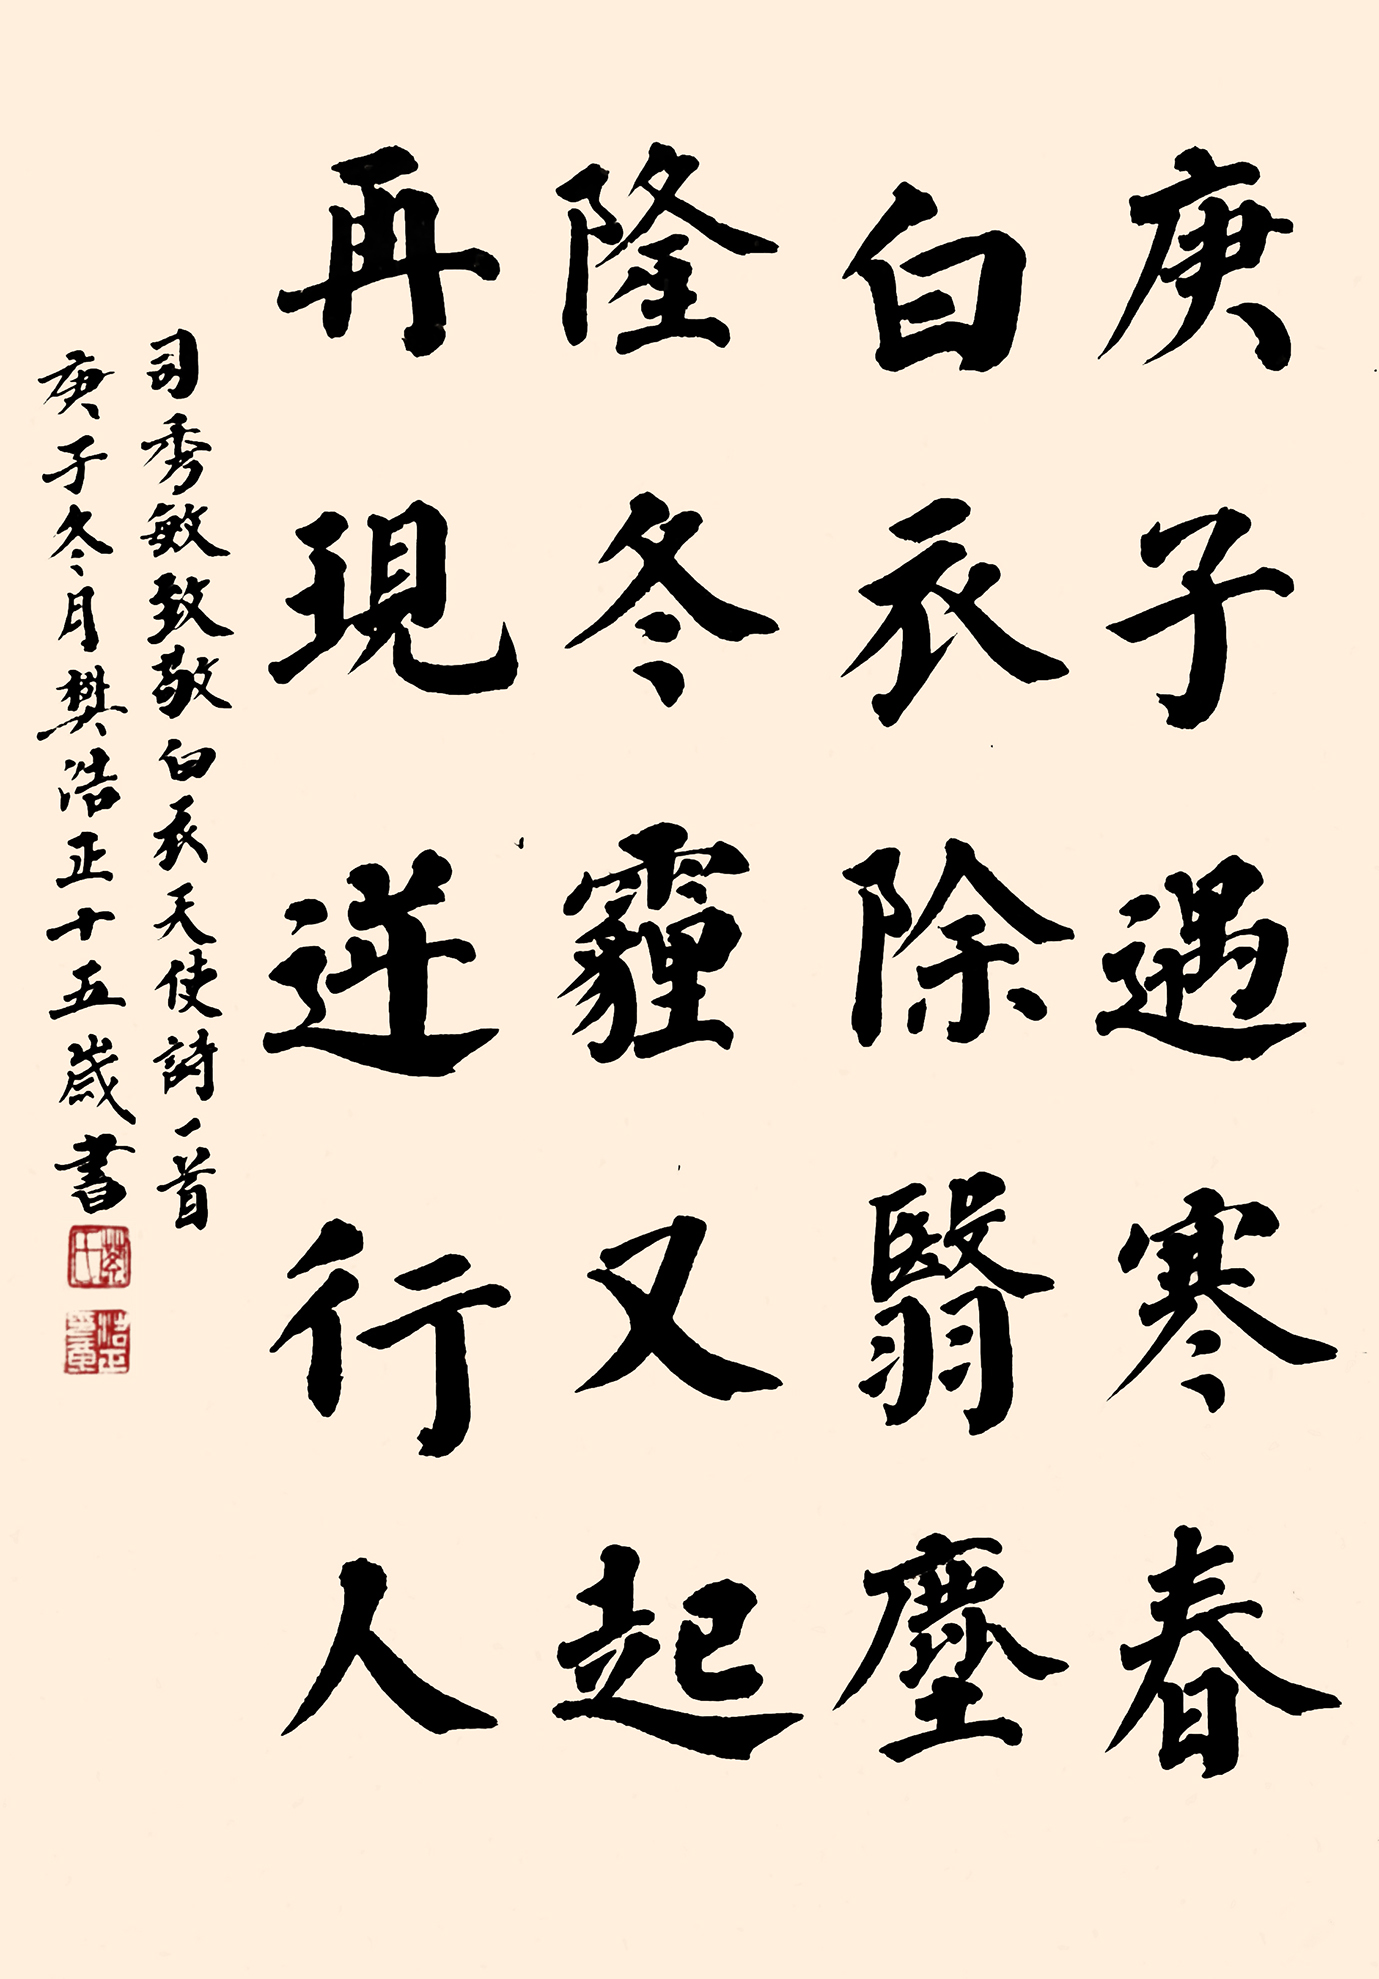 庚子遇寒春
白衣除翳塵
隆冬霾又起
再現逆行人
司秀敏致敬白衣天使詩一首
庚子冬月樊浩正十五歲書
樊氏
浩正印章